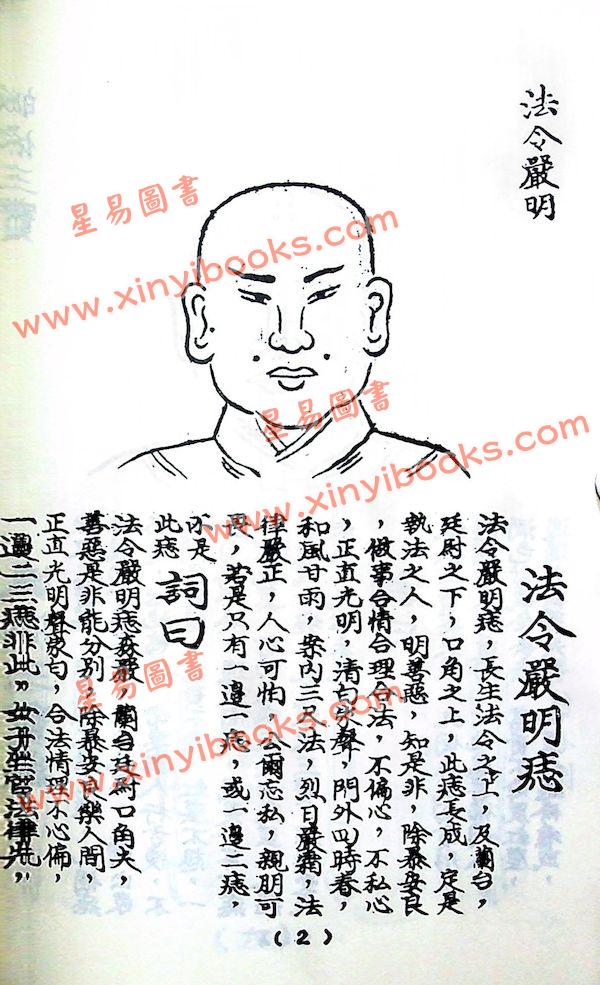 法令嚴明
法令嚴明痣
法令嚴明痣，長生法令之上，及蘭台，
廷尉之下，口角之上，此痣長成，定是
執法之人，明善惡，知是非，除暴安良
，做事合情合理合法，不偏心，不私心
，正直光明，清白家聲，門外四時春，
和風甘雨，案內三尺法，烈日嚴霜，法
律嚴正，人心可怕，公爾忘私，親朋可
畏，若是只有一邊一痣，或一邊二痣，
不是
此痣
詞曰
法令嚴明痣森嚴，蘭台廷尉口角，
善惡是非能分別，除暴安良樂人間，
正直光明聲家白，合法情理不心偏，
一邊二三痣非此，女子坐官法律先，
(2)
星易圖書
www.xinyibooks.com
星易圖書
www.xinyibooks.com
星易圖書
www.xinyibooks.com